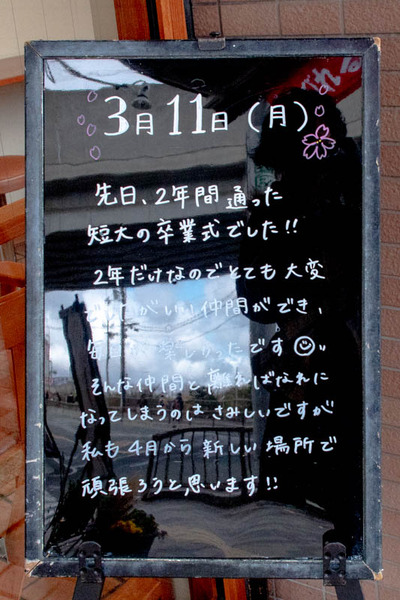 3月11日(月)
先日、2年間通った
短大の卒業式でした!!
2年だけなのでとても大変
がいい仲間ができ、
毎日 楽しかったです
そんな仲間と離ればなれに
なってしまうのはさみしいですが
私も4月から新しい場所で
頑張ろうと思います!!